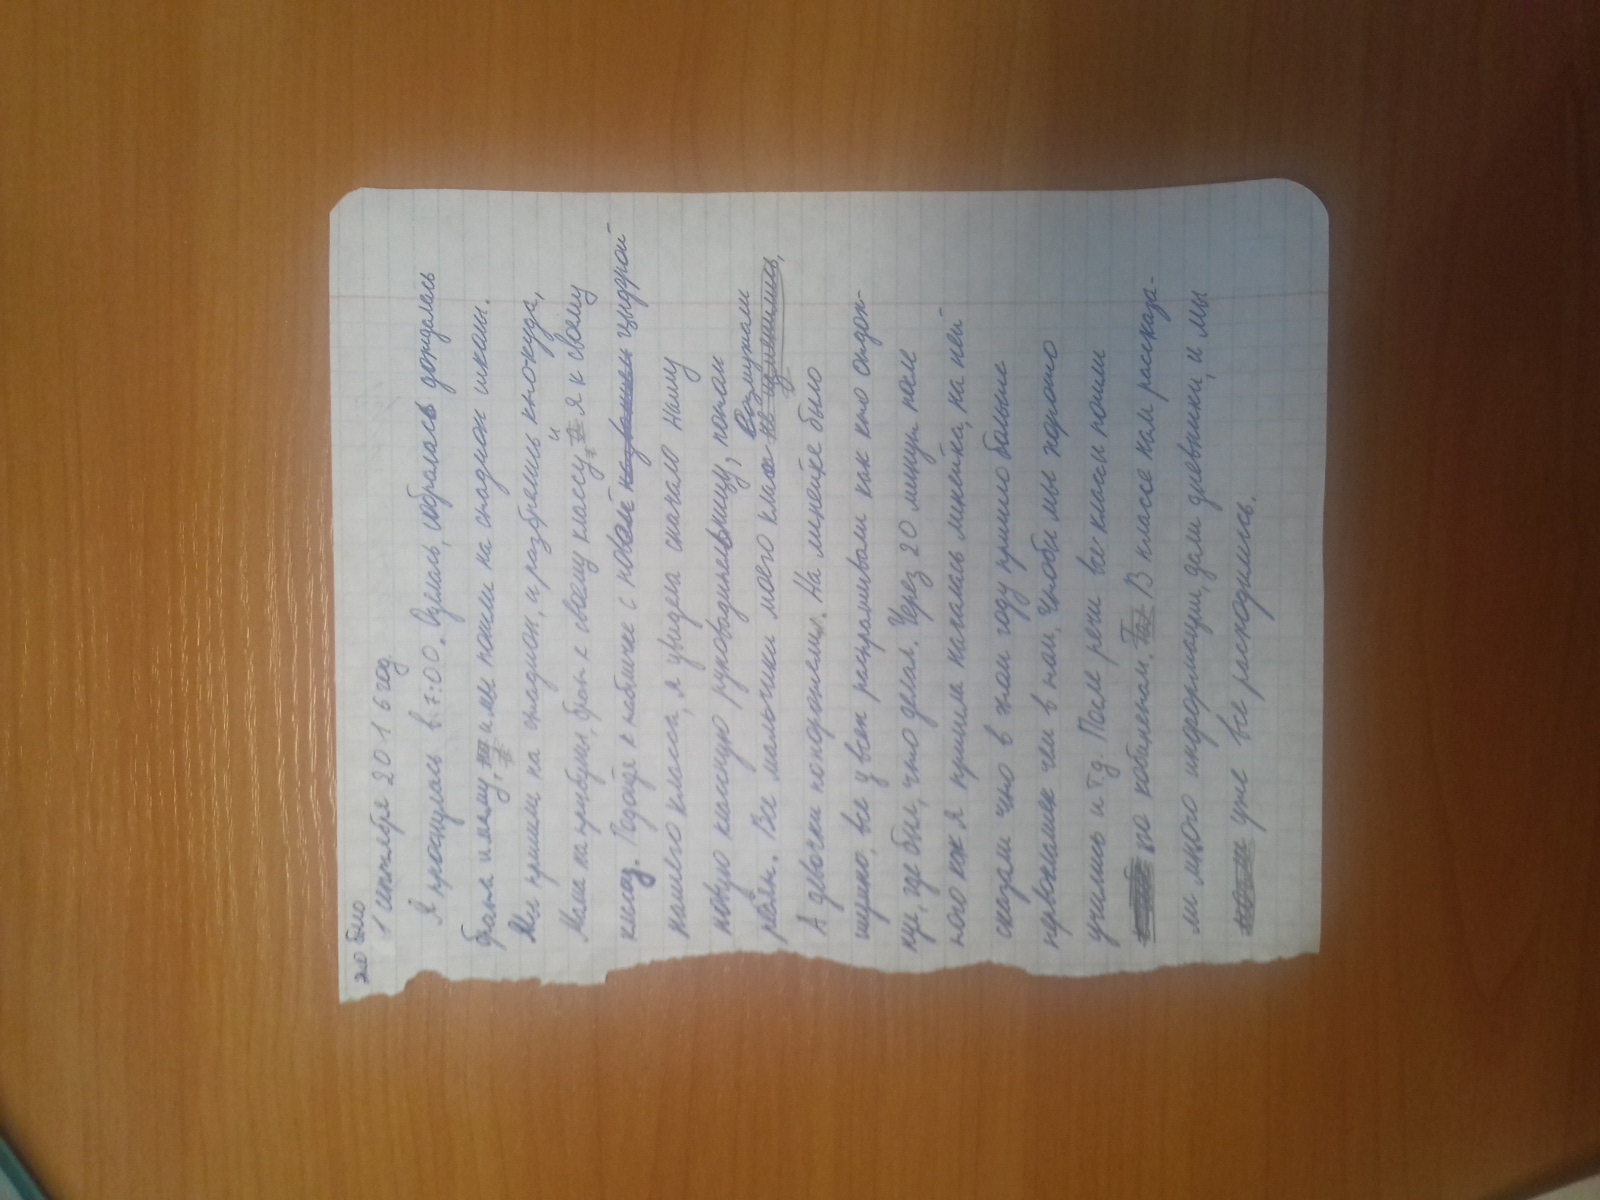 это было
1 сентября 2016 год
Я проснулась в 7:00. Оделась, собралась дождалась
брата и маму, и мы пошли на стадион школы.
Мы пришли на стадион, и разбрелись кто куда,
Мама на трибуны, брат к своему классу, и я к своему
классу. Подойдя к табличке с новой цифрой
нашего класса, я увидела сначала нашу
новую классную руководительницу, потом
ребят. Все мальчики моего класса возмужали
А девочки похорошели. На линейке было
шумно, все у всех расспрашивали как кто отдох-
нул, где был, что делал. Через 20 минут после
того как я пришла началась линейка, на ней
сказали что в этом году пришло больше
первоклашек чем в том, чтобы мы хорошо
учились и т.д. После речи все классы пошли
по кабинетам. В классе нам рассказа-
ли много информации, дали дневники, и мы
уже все расходились.